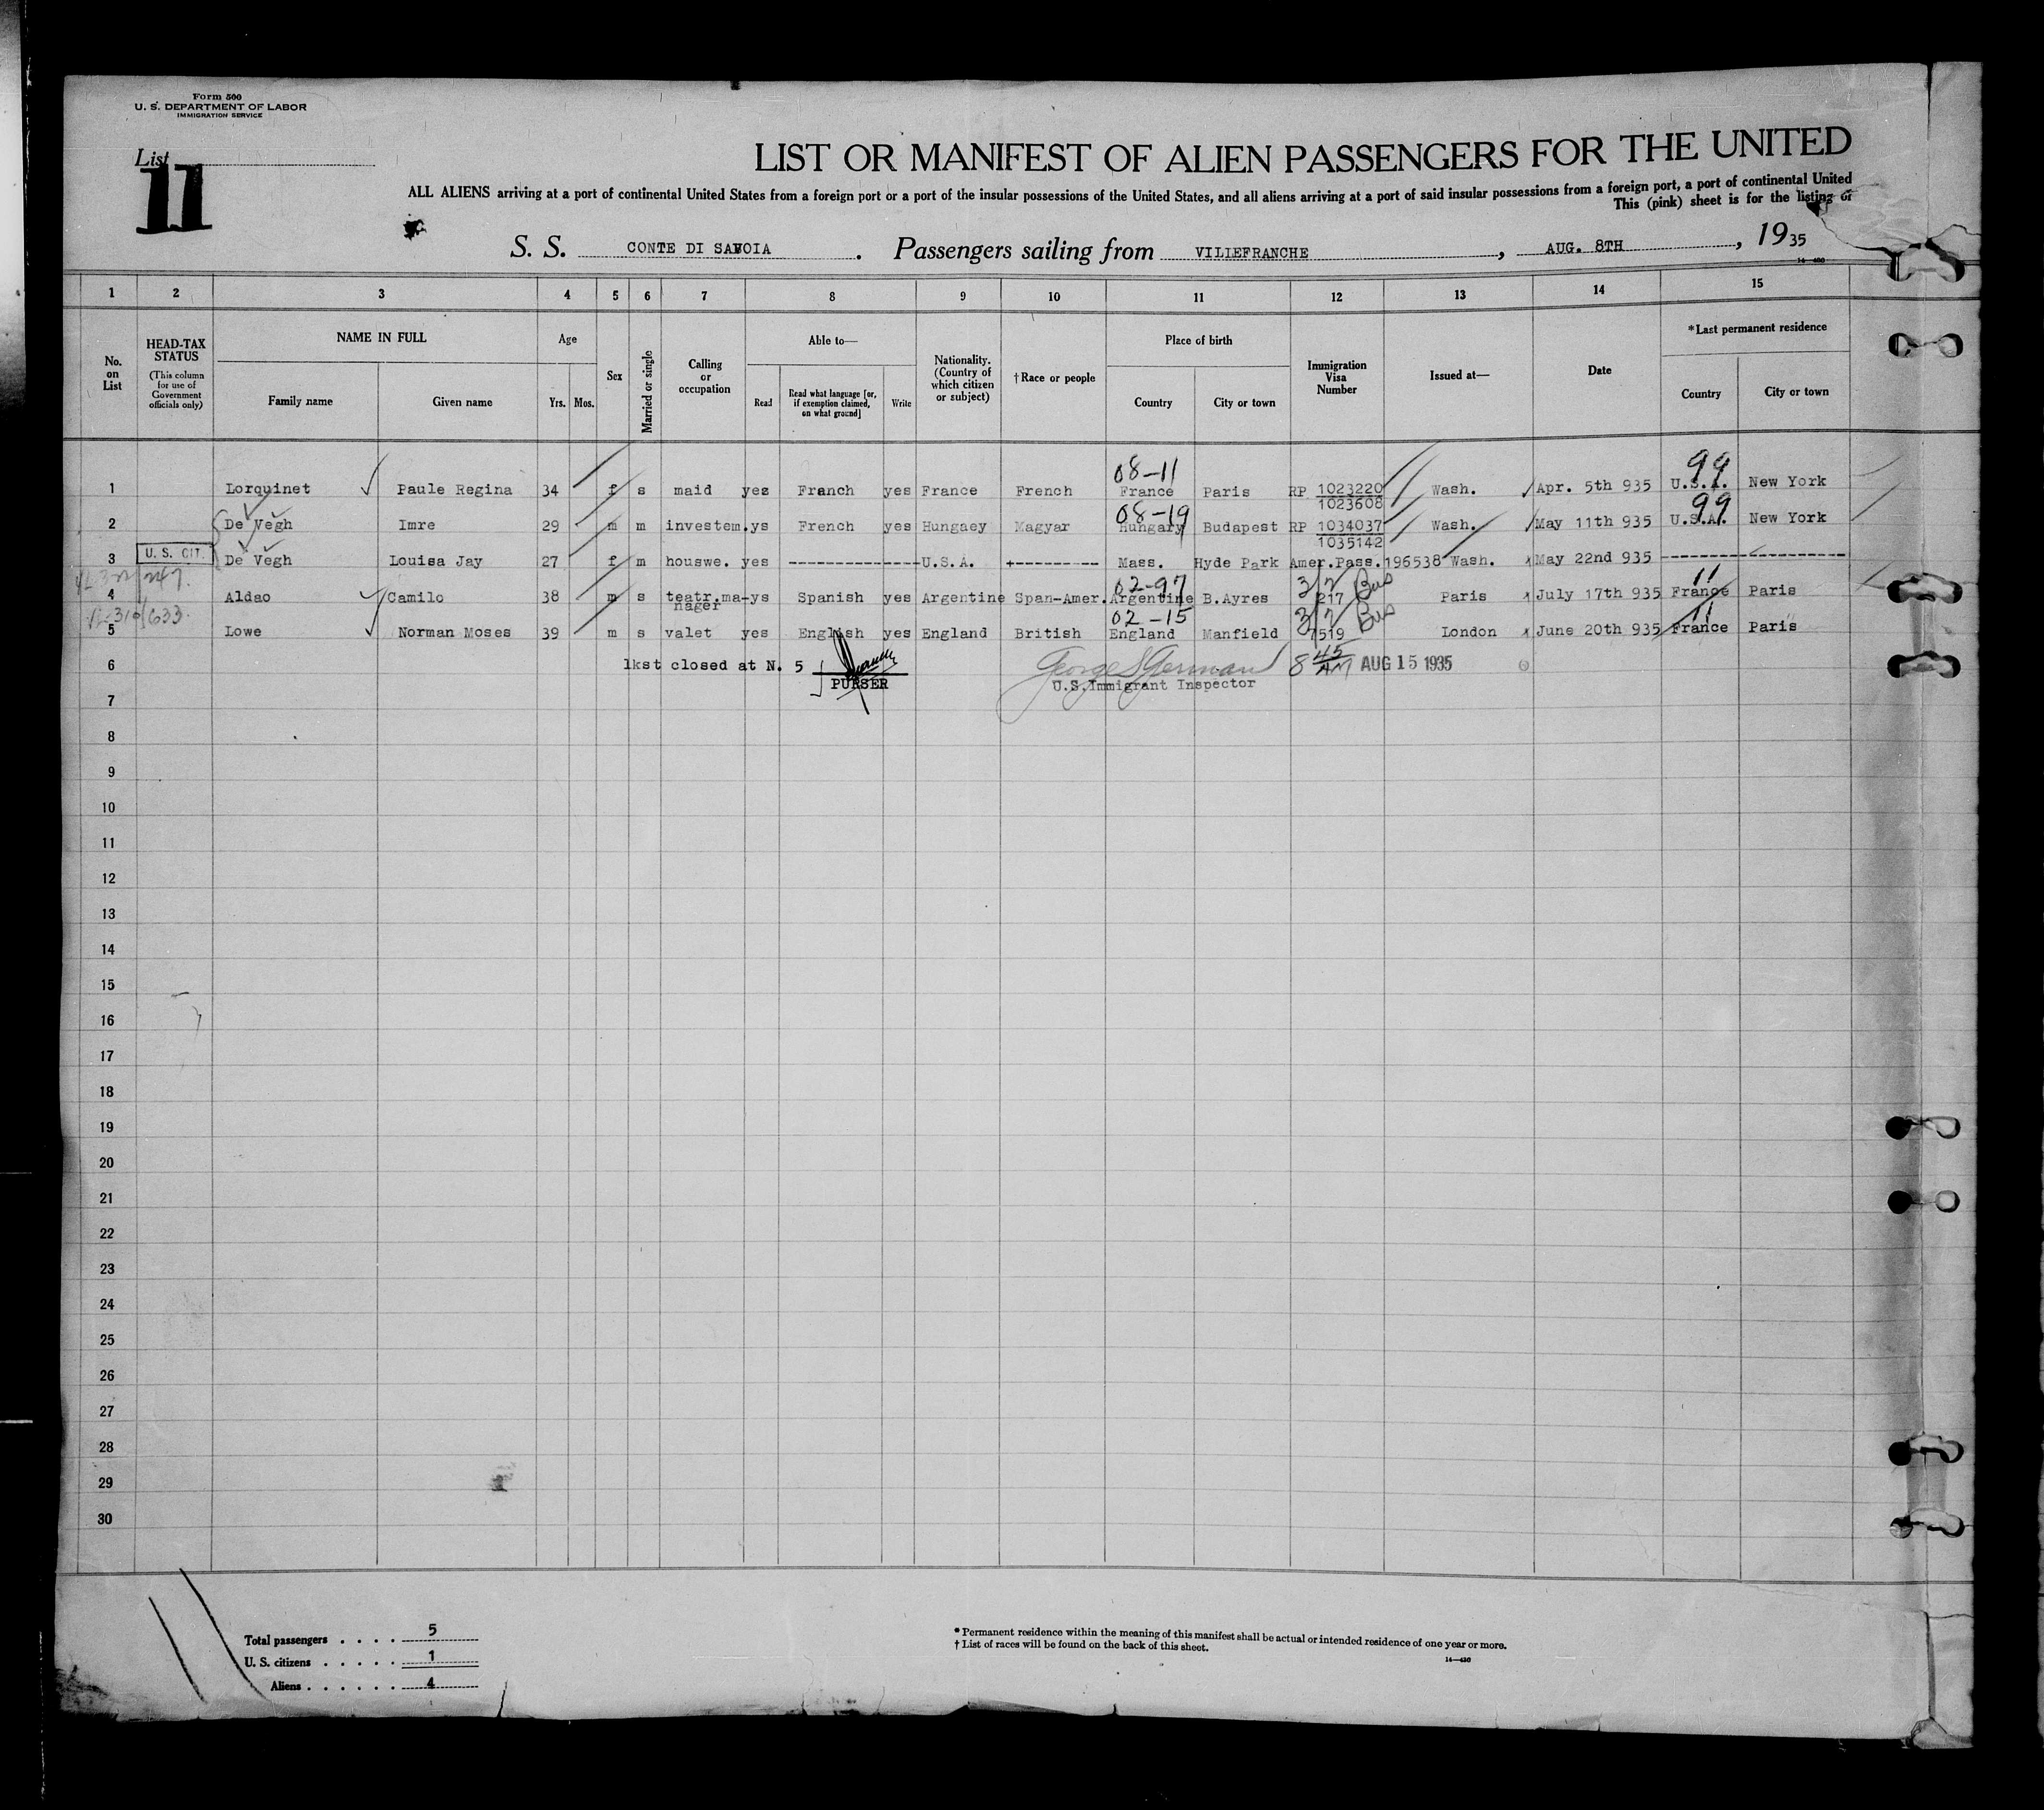 Form 500
U. S. DEPARTMENT OF LABOR
IMMIGRATION SERVICE
List
11
LIST OR MANIFEST OF ALIEN PASSENGERS FOR THE UNITED
ALL ALIENS arriving at a port of continental United States from a foreign port or a port of the insular possessions of the United States, and all aliens arriving at a port of said insular possessions from a foreign port, a port of continental United
This (pink) sheet is for the listing of
S. S. CONTE DI SAVOIA. Passengers sailing from VILLEFRANCHE, AUG. 8TH, 1935
14—430
1 2 3 4 5 6 7 8 9 10 11 12 13 14 15
No. on List
HEAD-TAX STATUS (This column for use of Government officials only)
NAME IN FULL
Family name Given name
Age
Yrs. Mos.
Sex
Married or single
Calling or occupation
Able to—
Read Read what language [or, if exemption claimed, on what ground] Write
Nationality. (Country of which citizen or subject)
†Race or people
Place of birth
Country City or town
Immigration Visa Number
Issued at—
Date
*Last permanent residence
Country City or town
08-11 99
1 Lorquinet Paule Regina 34 f s maid yes Franch yes France French France Paris RP 1023220 Wash. Apr. 5th 935 U.S.A. New York
1023608
08-19 99
2 De Vegh Imre 29 m m investem.ys French yes Hungaey Magyar Hungary Budapest RP 1034037 Wash. May 11th 935 U.S.A. New York
1035142
3 U. S. CIT. De Vegh Louisa Jay 27 f m houswe. yes ------------- U.S.A. ---------- Mass. Hyde Park Amer.Pass.196538 Wash. May 22nd 935 --------------------
247. 02-97 3/2 Bus 11
4 Aldao Camilo 38 m s teatr.ma-ys Spanish yes Argentine Span-Amer. Argentine B.Ayres 217 Paris July 17th 935 France Paris
nager
633. 02-15 3/2 Bus 11
5 Lowe Norman Moses 39 m s valet yes English yes England British England Manfield 7519 London June 20th 935 France Paris
6 lkst closed at N. 5 George S German 8 45 AM AUG 15 1935
PURSER U.S.Immigrant Inspector
7
8
9
10
11
12
13
14
15
16
17
18
19
20
21
22
23
24
25
26
27
28
29
30
Total passengers . . . . 5
U. S. citizens . . . . . 1
Aliens . . . . . . 4
* Permanent residence within the meaning of this manifest shall be actual or intended residence of one year or more.
† List of races will be found on the back of this sheet.
14—430